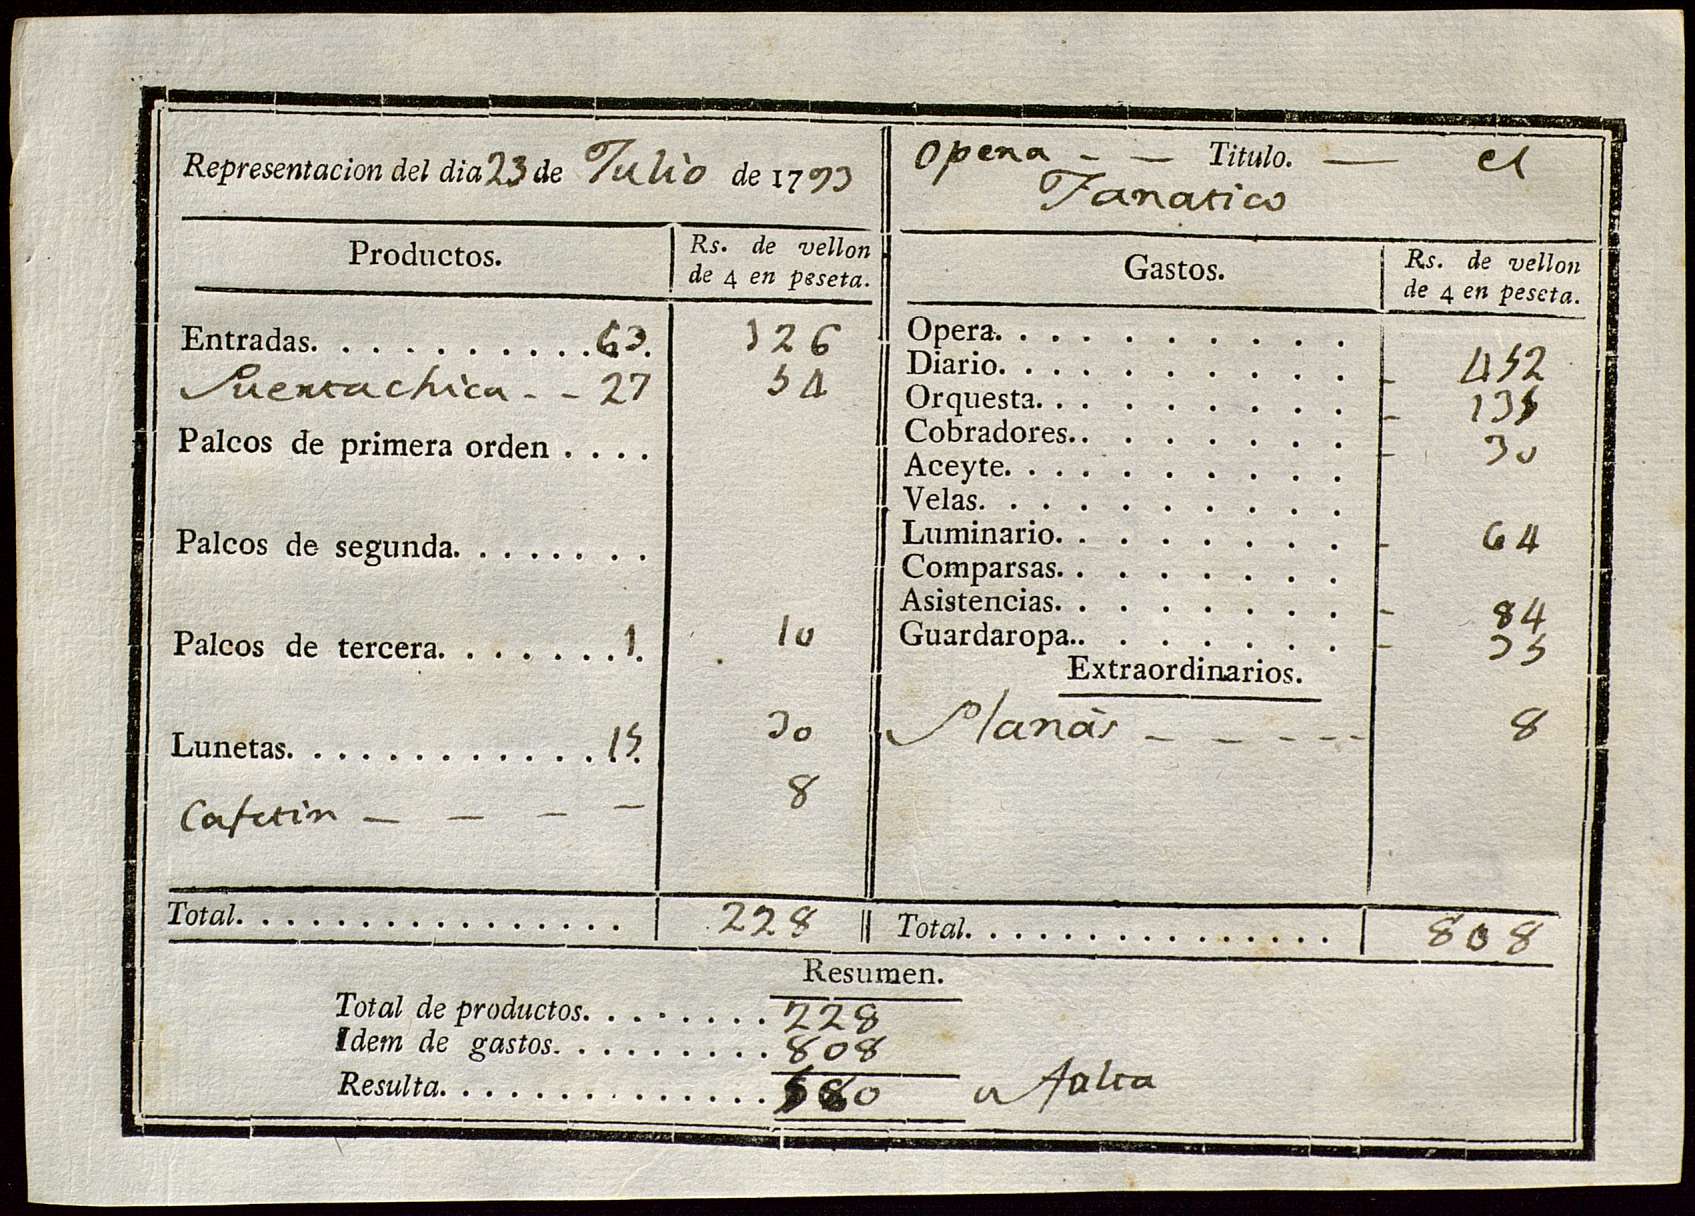 Representacion del dia 23 de Julio de 1793
Productos.
Rs. de vellon
de 4 en peseta.
Entradas. . . . . . . . . . 63. 126
Puertachica - - 27 54
Palcos de primera orden . . . .
Palcos de segunda. . . . . . . .
Palcos de tercera. . . . . . . 1. 10
Lunetas. . . . . . . . . . . . 15. 30
Cafetin - - - - 8
Total. . . . . . . . . . . . . . . . 228
Opera - - Titulo. - el
Fanatico
Gastos.
Rs. de vellon
de 4 en peseta.
Opera. . . . . . . . . .
Diario. . . . . . . . . . - 452
Orquesta. . . . . . . . . - 135
Cobradores. . . . . . . . - 30
Aceyte. . . . . . . . . .
Velas. . . . . . . . . .
Luminario. . . . . . . . - 64
Comparsas. . . . . . . .
Asistencias. . . . . . . . - 84
Guardaropa. . . . . . . . - 35
Extraordinarios.
Planàs - - - - - 8
Total. . . . . . . . . . . . . . . 808
Resumen.
Total de productos. . . . . . . . 228
Idem de gastos. . . . . . . . . 808
Resulta. . . . . . . . . . . . . . 580 falta